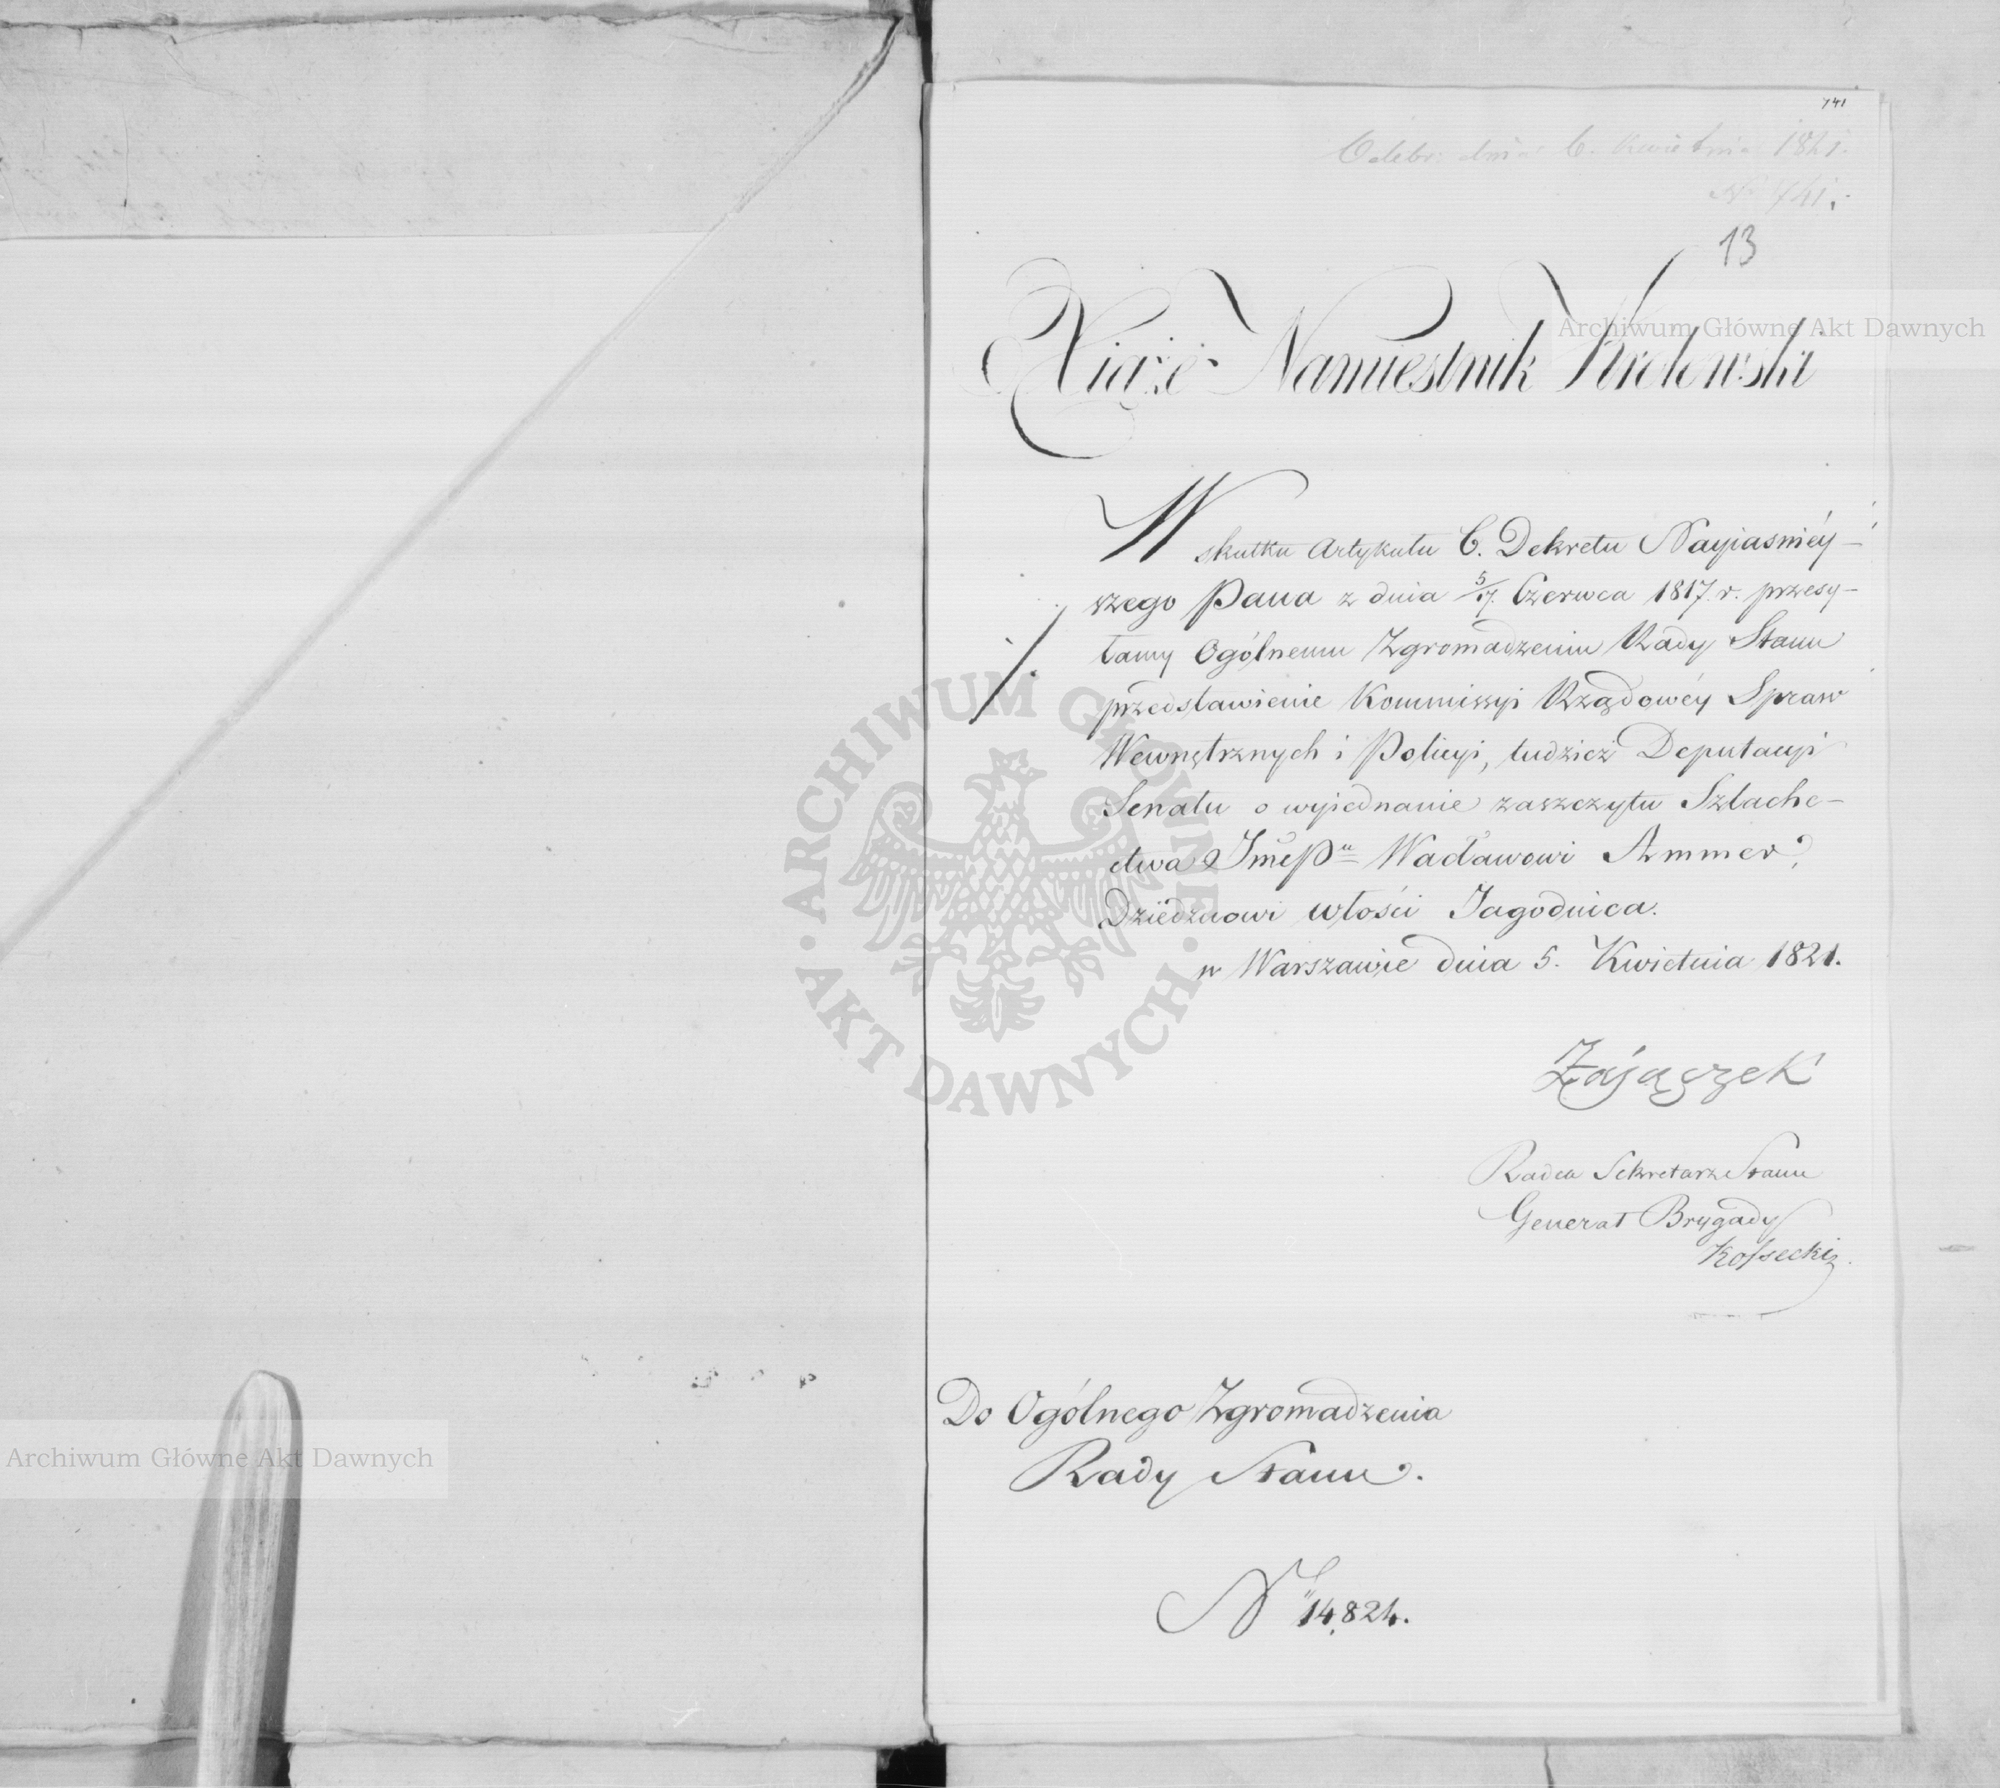 741
Odebr: dnia 6. Kwietnia 1821.
No 741.
13
Xiąże Namiestnik Królewski
W skutku Artykułu 6. Dekretu Nayiaśniéy-
szego Pana z dnia 5/17. Czerwca 1817. r. przesy-
łamy Ogólnemu Zgromadzeniu Rady Stanu
przedstawienie Kommissyi Rządowéy Spraw
Wewnętrznych i Policyi, tudzież Deputacyi
Senatu o wyjednanie zaszczytu Szlache-
ctwa JmćPu Wacławowi Ammer,
Dziedzicowi włości Jagodnica.
w Warszawie dnia 5. Kwietnia 1821.
Zajączek
Radca Sekretarz Stanu
Generał Brygady
Kossecki
Do Ogólnego Zgromadzenia
Rady Stanu.
N 14,824.
Archiwum Główne Akt Dawnych
Archiwum Główne Akt Dawnych
ARCHIWUM GŁÓWNE · AKT DAWNYCH ·